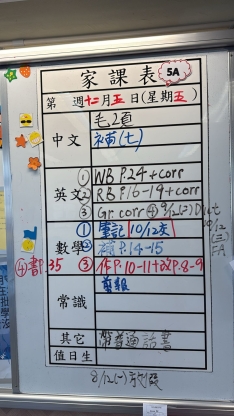 家課表 5A
第 週十二月五日(星期五)
中文 毛2頁
補(七)
英文 ① WB P.24+corr
② RB P.16-19+corr
③ Gr. corr ④ 9/12(二) Dict
10/12
(三)
FA
數學 ① 筆記 10/12交
② 補P.14-15
④書P.35 ③ 作P.10-11+改P.8-9
常識 剪報
其它 帶普通話書
值日生
8/12(一)放假